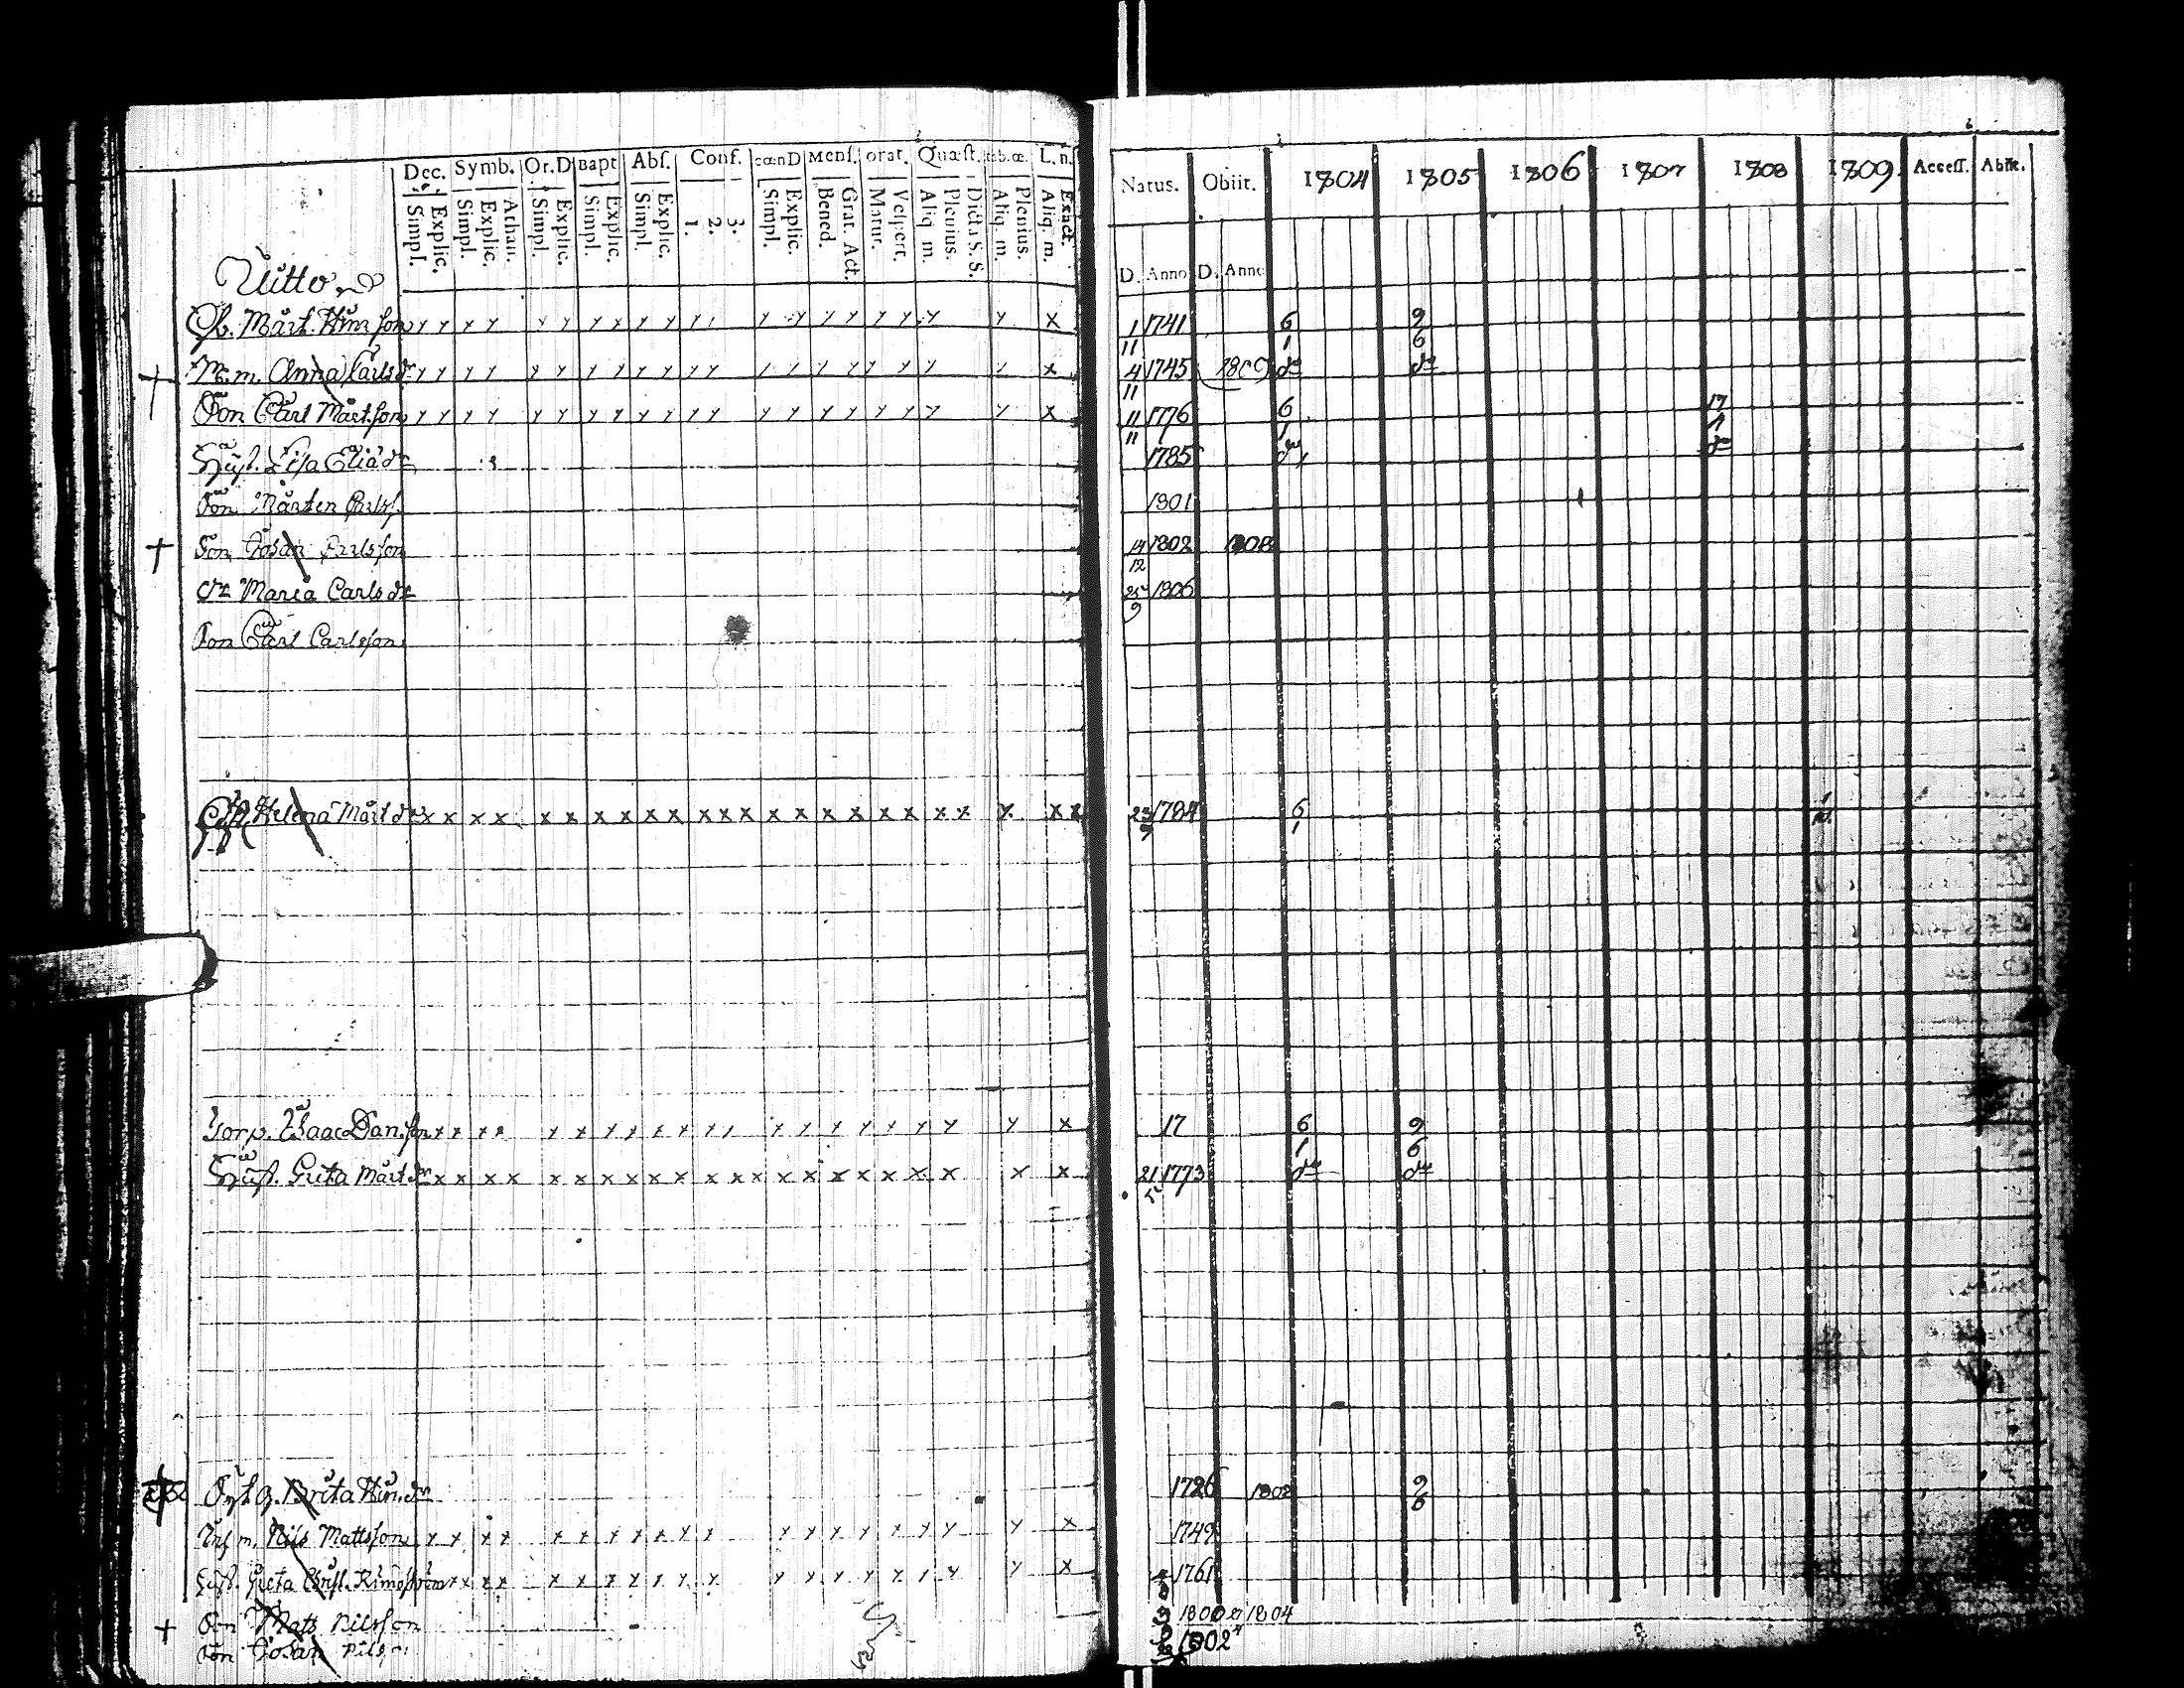 Dec. Symb. Or.D Bapt Abſ. Conf. cœnD Menſ. orat. Quæſt. L.n.
Simpl. Explic. Simpl. Explic. Athan. Simpl. Explic. Simpl. Explic. Simpl. Explic. 1. 2. 3. Simpl. Explic. Bened. Grat. Act. Matut. Veſpert. Aliq. m. Plenius. Dicta S.S. Aliq. m. Plenius. Aliq. m. Exact.
Natus. Obiit. 1804 1805 1806 1807 1808 1809 Acceſſ. Abiit.
D. Anno D. Anno
Uitto
Mårt. Hinrſon 1/11 1741 6/1 9/6
M.m. Anna Carlsdr 4/11 1745 1809 do do
Son Carl Mårt.ſon 11/11 1776 6/1 17/1
Huſt. Liſa Eliædr 1785 do do
Son Mårten Carlsſ. 1801
Son Johan Carlsſon 14/12 1802 1808
dr Maria Carlsdr 25/9 1806
Son Carl Carlsſon
Helena Mårtdr 23/9 1784 6/1
Torp. Iſaac Dan.ſon 17 6/1 9/6
Huſt. Greta Mårtdr 21 1773 do do
Brita Hin.dr 1726 1808 9/6
Inh m. Nils Mattsſon 1749
Huſt. Greta 1761
Son Matts Nilsſon 1800 1804
Son Johan Nilsſon 1802